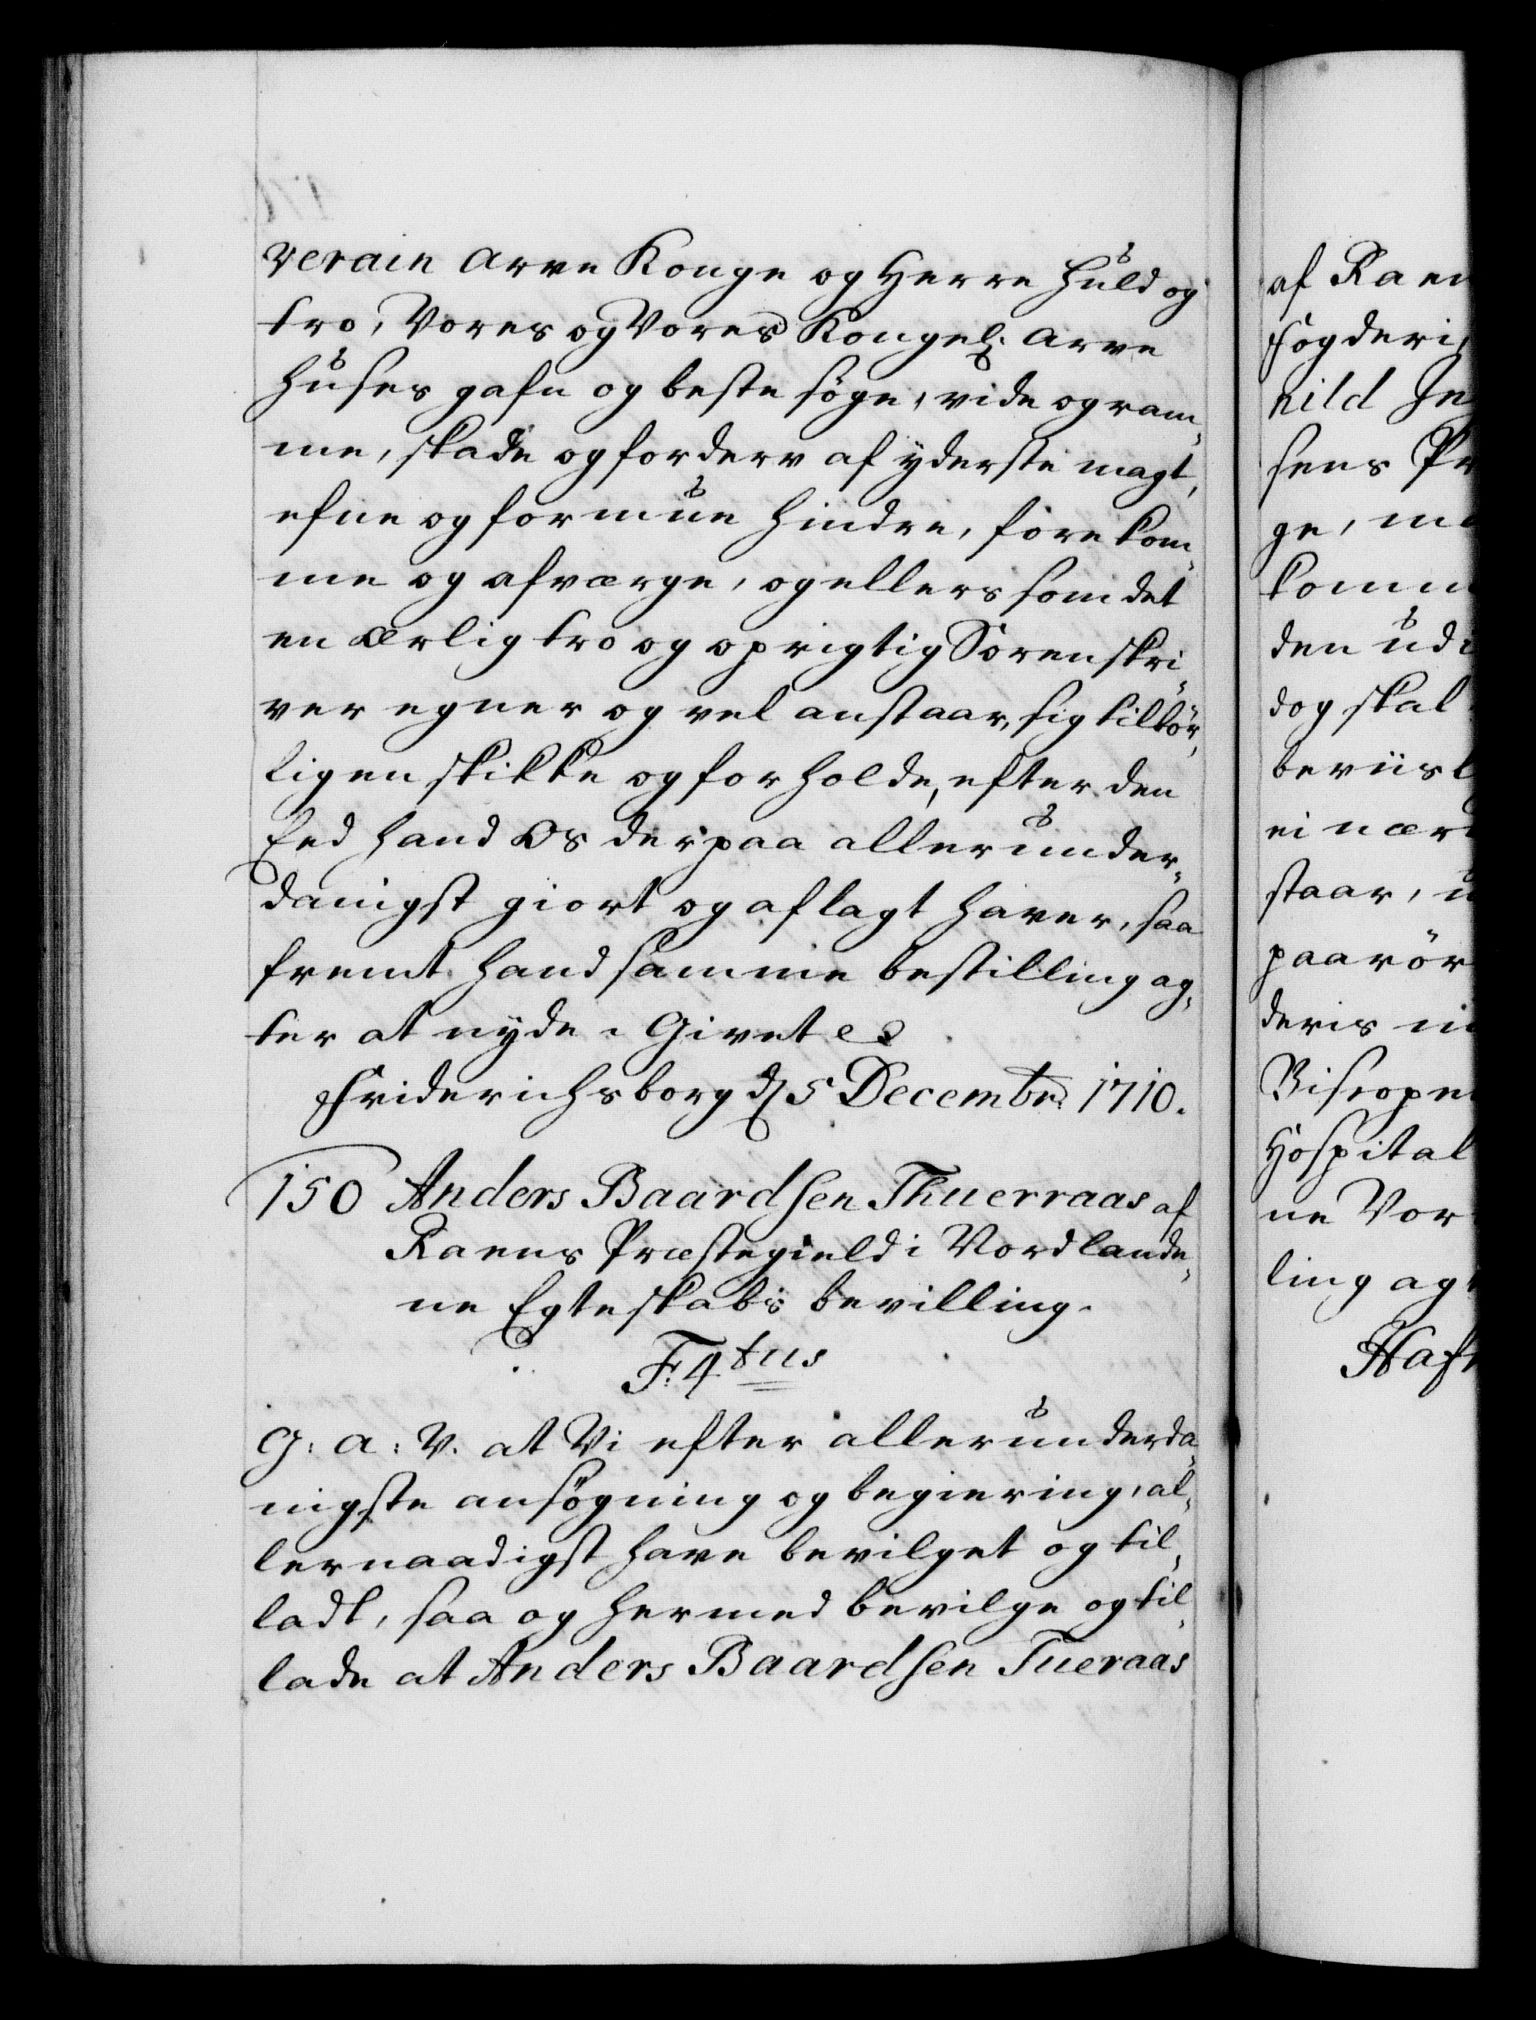 verain Arve Konge og Herre huld og
tro, Vores og Vores Kongel: Arve
Huses gafn og beste söge, vide og ram-
me, skade og forderv af yderste magt,
efne og formue hindre, forekom-
me og afværge, og ellers som det
en ærlig tro og oprigtig Sorenskri-
ver egner og vel anstaar, sig tilbör-
ligen skikke og forholde, efter den
Eed hand Os derpaa allerunder-
danigst giort og aflagt haver, saa
fremt hand samme bestilling ag-
ter at nyde. Givet
Friderichsborg d 5 Decembr: 1710.
150 Anders Baardsen Thuerraas af
Raens Præstegield i Nordlande-
ne Egteskabs bevilling.
F: 4tus
G: A: V. at Vi efter allerunderda-
nigste ansögning og begiering, al-
lernaadigst have bevilget og til-
ladt, saa og hermed bevilge og til-
lade at Anders Baardsen Tueraas
af Raen
Fogderi,
hild Je
sens Pr
ge, m
komm
den udi
dog skal
beviisl
ei nær
staar, u
paarör
deris
Bispopne
Hospital
ne Vor
ling ag
Hafn